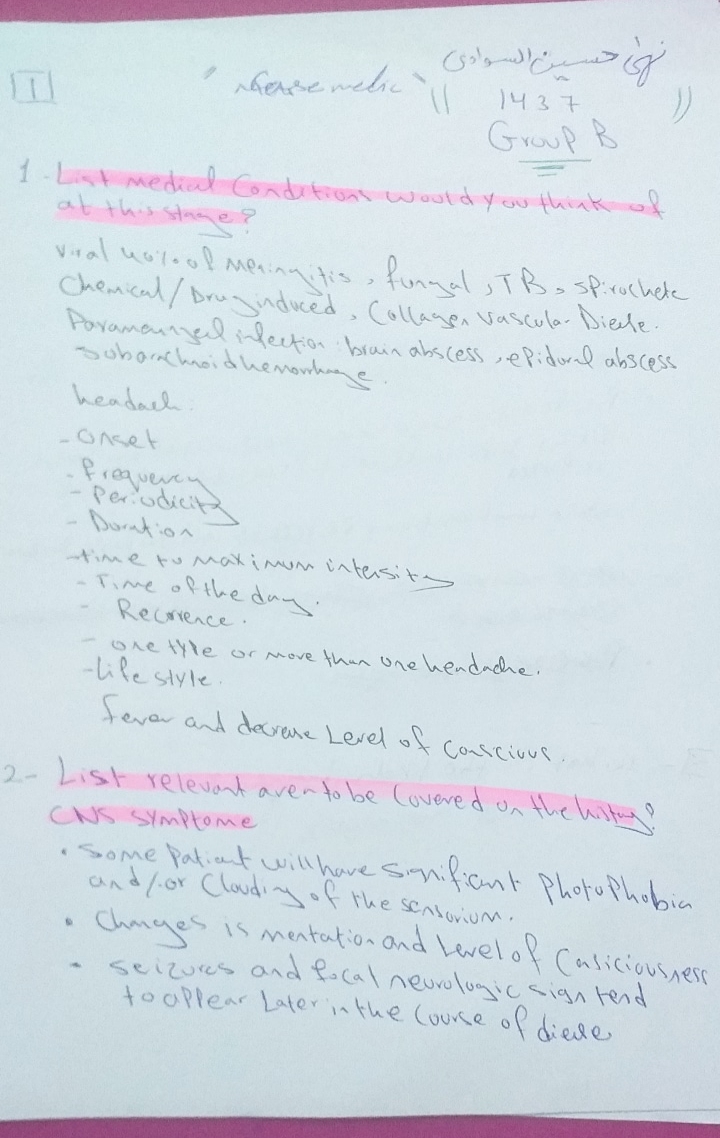 1
نهى حسين السوادي
" "
(( 1437 ))
Group B
1- List medical Conditions would you think of
at this stage?
Viral 40% of Meningitis, fungal, TB, spirochete
Chemical/Drug induced, Collagen vascular Diesese.
Parameningeal infection: brain abscess, epidural abscess
subarachnoid hemorrhage.
headach.
- Onset
- frequency
- Periodicity
- Duration
- time to maximum intensity
- Time of the day.
- Recorrence.
- one type or more than one headache.
- Life style.
fever and decrease Level of conscious.
2- List relevant area to be Covered on the history?
CNS symptome
• Some Patient will have significant PhotoPhobia
and/or Clouding of the sensorium.
• Changes is mentation and Level of Consiciousness
• seizures and focal neurologic sign tend
to appear Later in the course of